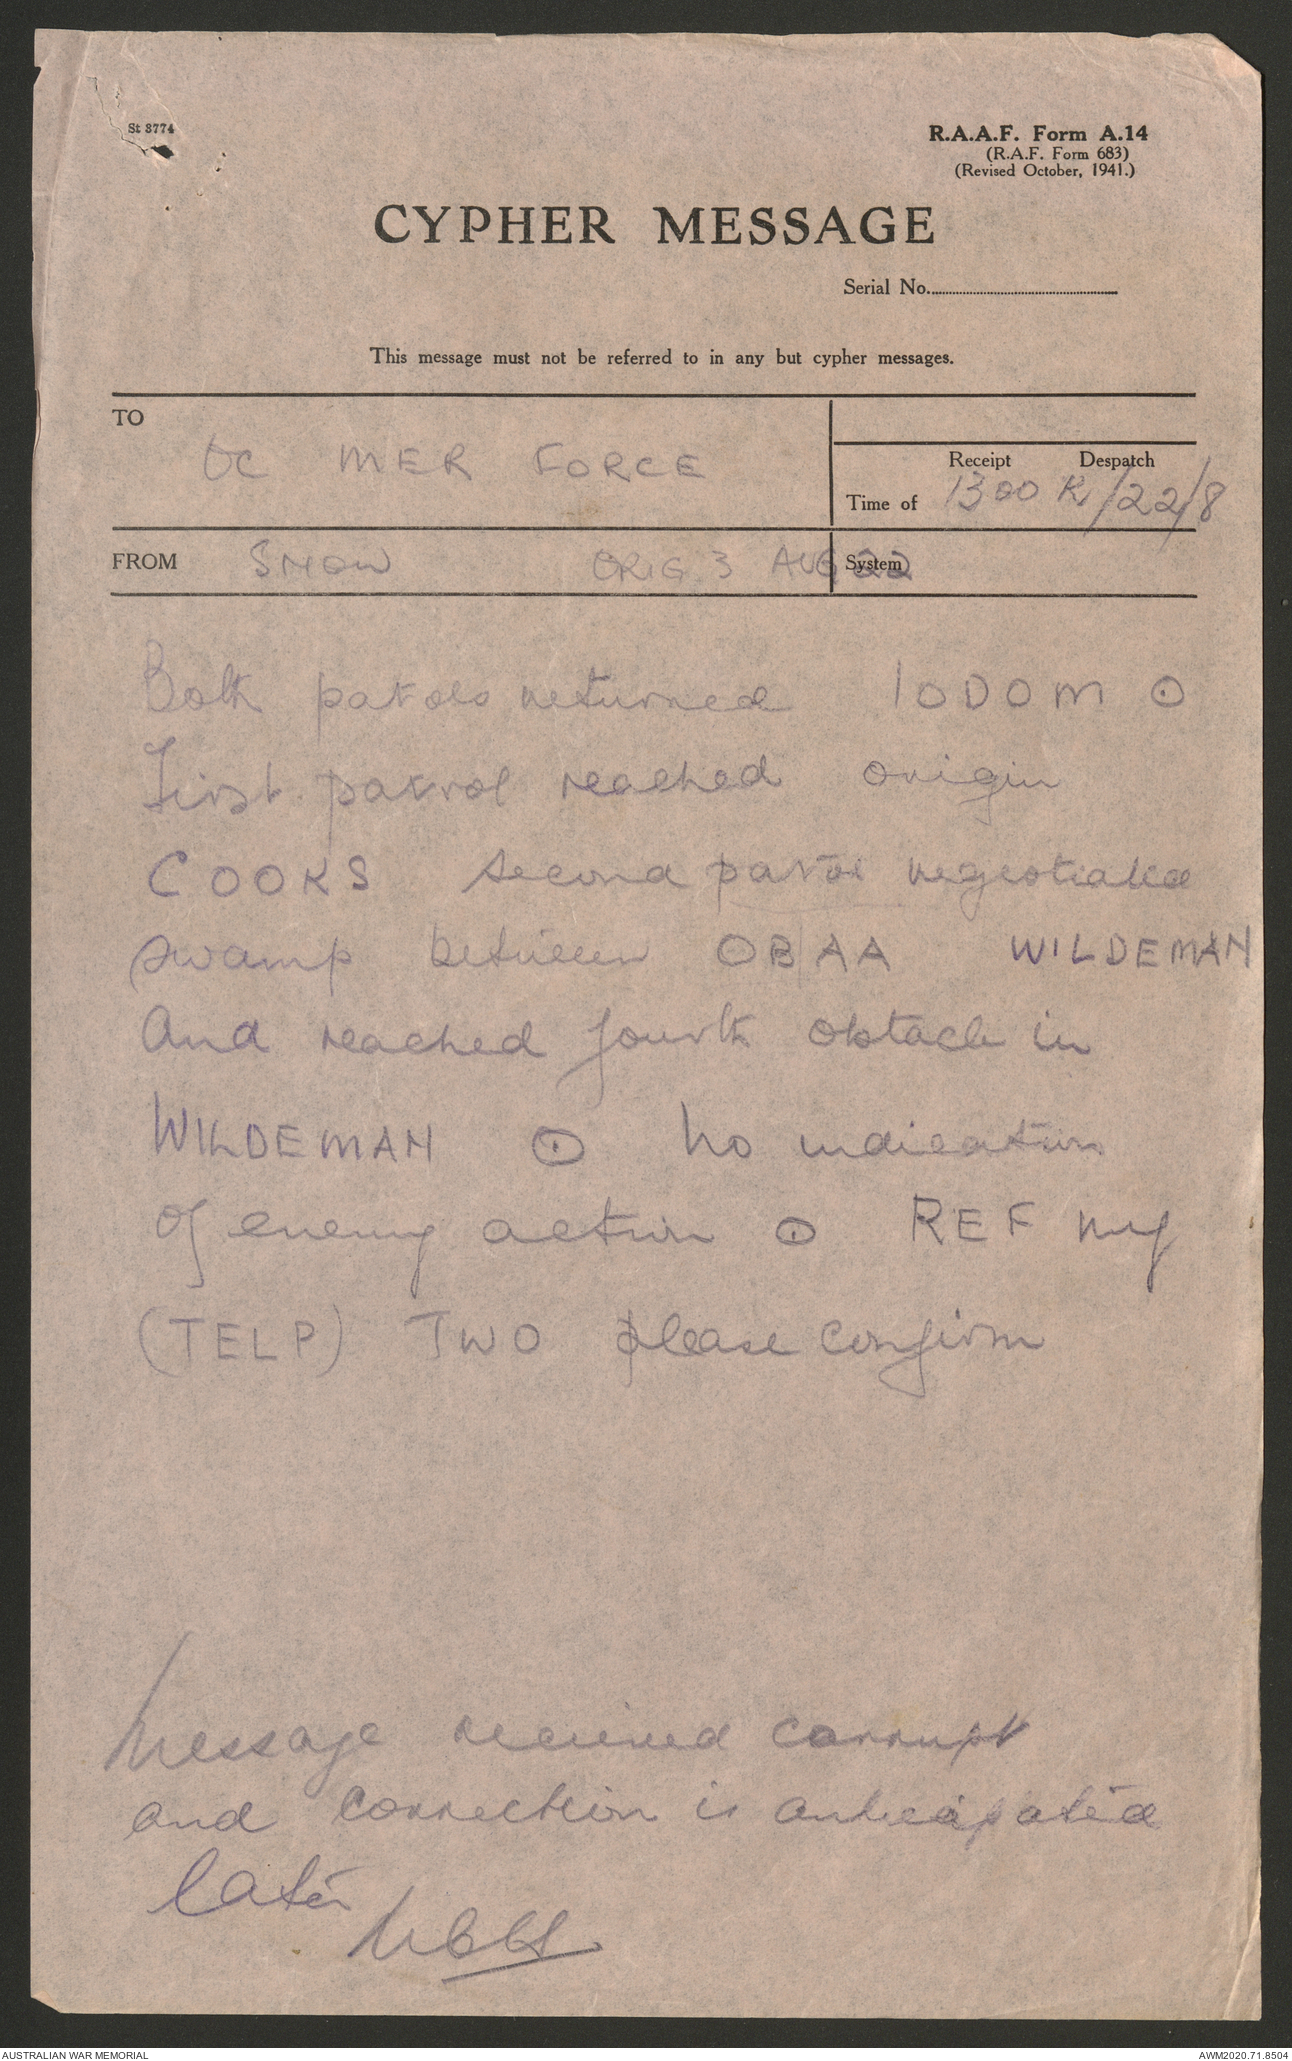 St 3774
R.A.A.F. Form A.14
(R.A.F. Form 683)
(Revised October, 1941.)
CYPHER MESSAGE
Serial No.
This message must not be referred to in any but cypher messages.
TO
OC MER FORCE
Receipt Despatch
Time of 1300 K/22/8
FROM SNOW ORIG 3 AUG 22 System
Both patrols returned IODOM ⊙
First patrol reached origin
COOKS second patrol negotiated
swamp between OBAA WILDEMAN
And reached fourth obstacle in
WILDEMAN ⊙ No indication
of enemy action ⊙ REF my
(TELP) TWO please confirm
Message received corrupt
and correction is anticipated
later
AUSTRALIAN WAR MEMORIAL
AWM2020.71.8504